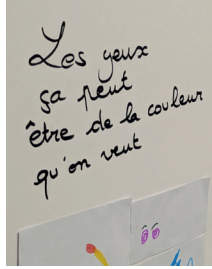 Les yeux
ça peut
être de la couleur
qu'on veut